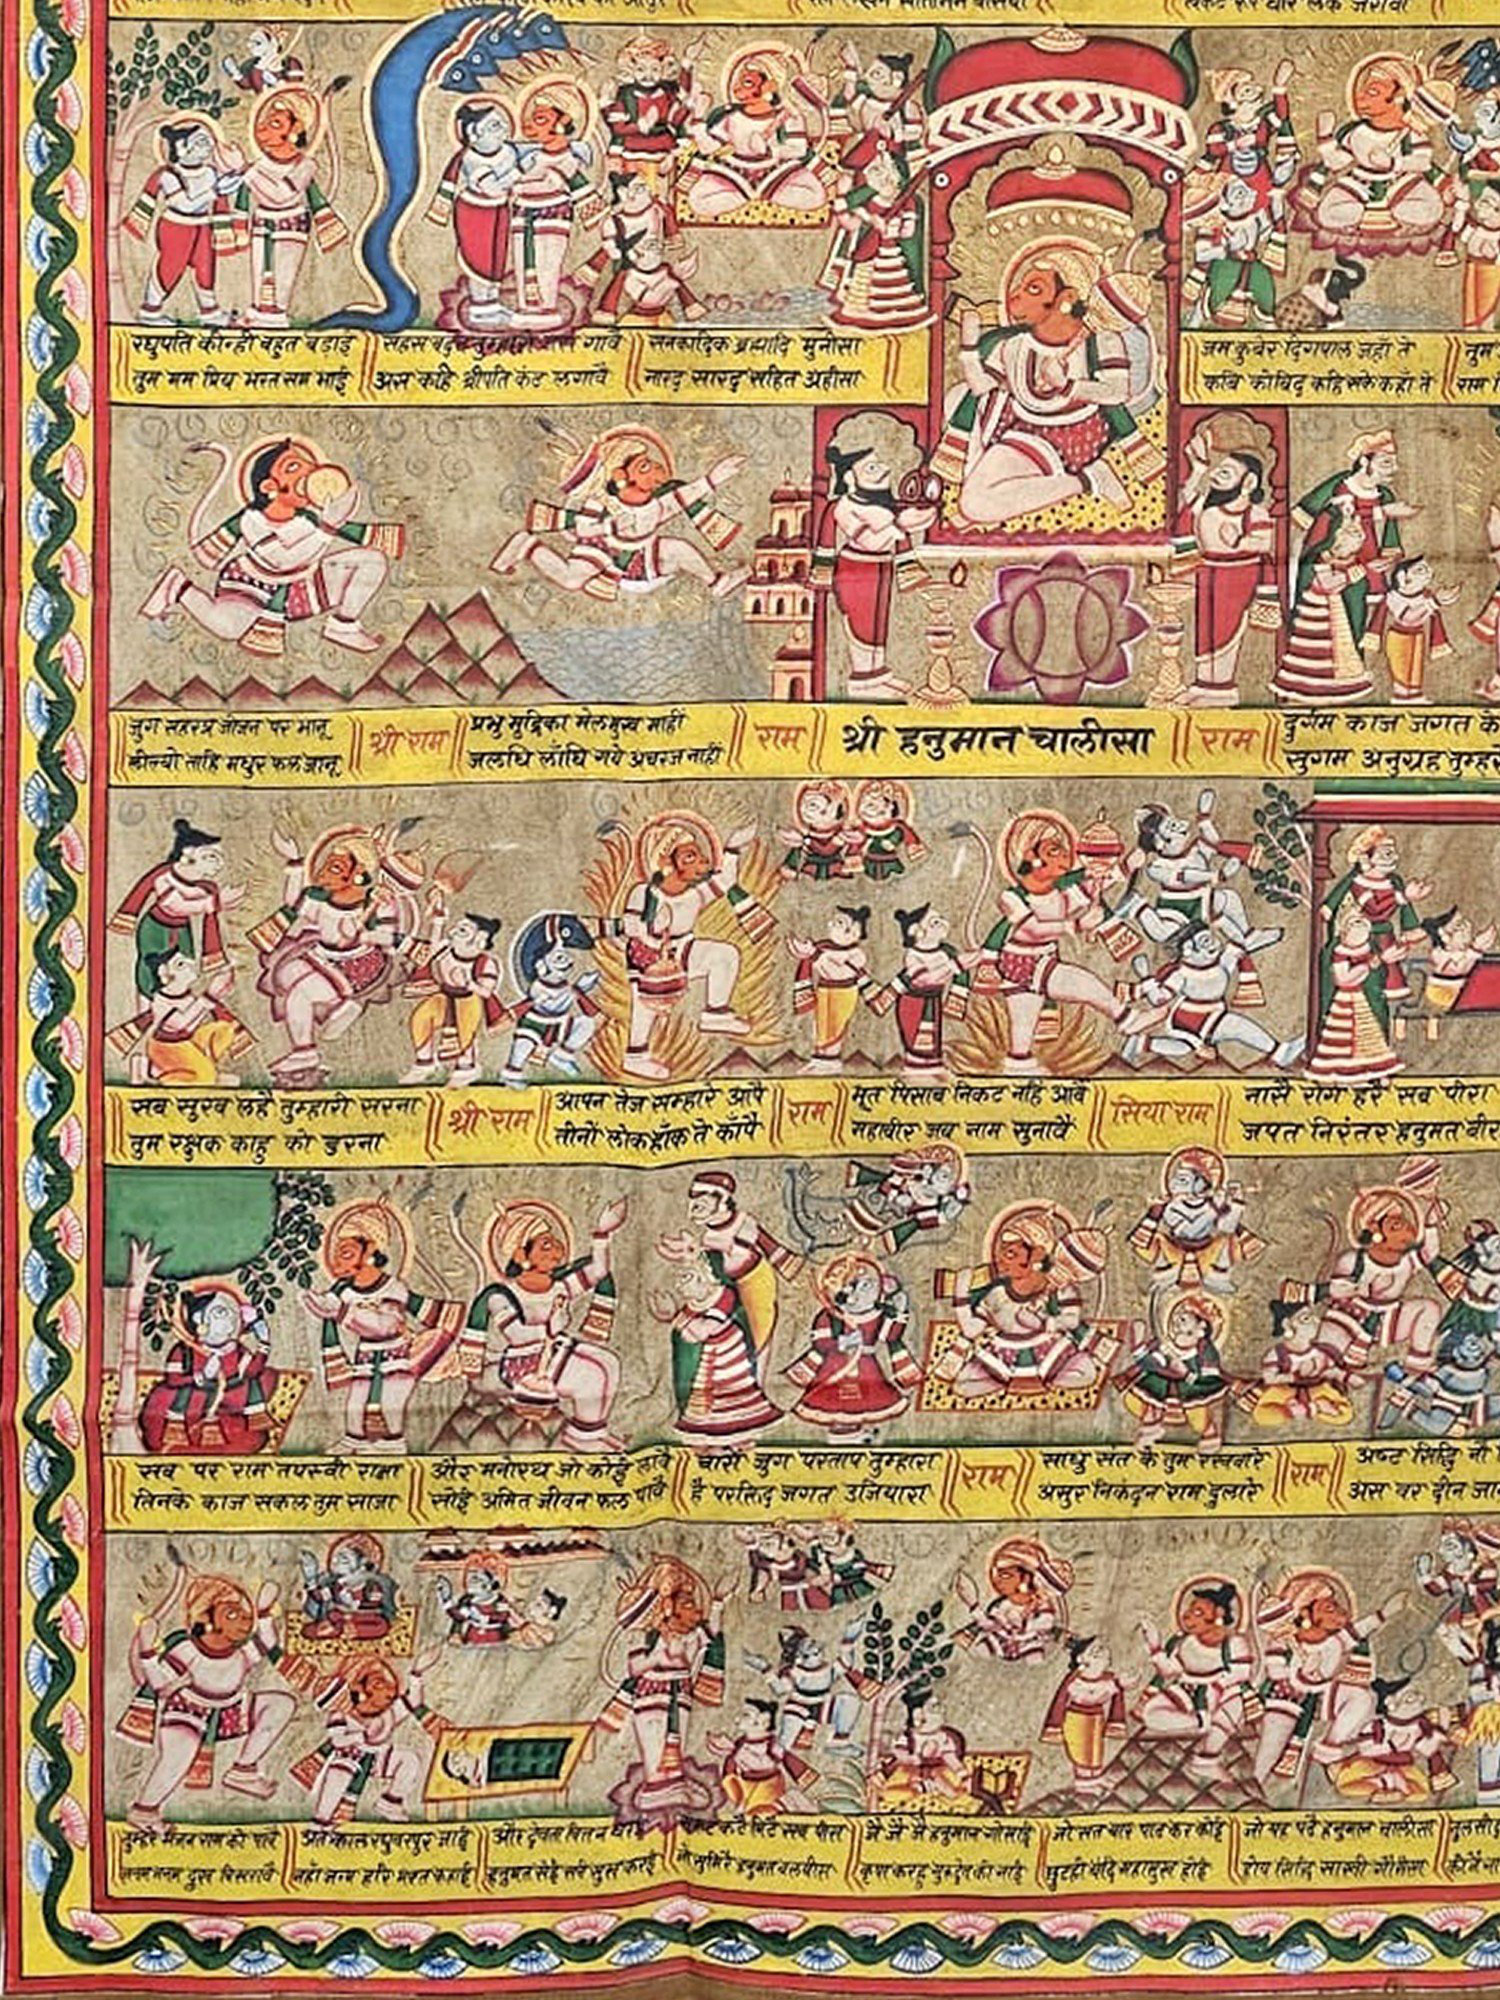 रघुपति कीन्ही बहुत बड़ाई
तुम मम प्रिय भरत सम भाई
सहस बदन तुम्हारो जस गावै
अस कहि श्रीपति कंठ लगावै
सनकादिक ब्रह्मादि मुनीसा
नारद सारद सहित अहीसा
जम कुबेर दिगपाल जहाँ ते
कबि कोबिद कहि सके कहाँ ते
तुम
राम
जुग सहस्त्र जोजन पर भानू
लील्यो ताहि मधुर फल जानू
श्री राम
प्रभु मुद्रिका मेल मुख माहीं
जलधि लाँघि गये अचरज नाहीं
राम
श्री हनुमान चालीसा
राम
दुर्गम काज जगत के
सुगम अनुग्रह तुम्हरे
सब सुख लहै तुम्हारी सरना
तुम रक्षक काहु को डरना
श्री राम
आपन तेज सम्हारे आपै
तीनों लोक हाँक ते काँपै
राम
भूत पिसाच निकट नहि आवै
महाबीर जब नाम सुनावै
सिया राम
नासै रोग हरै सब पीरा
जपत निरंतर हनुमत बीरा
सब पर राम तपस्वी राजा
तिनके काज सकल तुम साजा
और मनोरथ जो कोई लावै
सोई अमित जीवन फल पावै
चारों जुग परताप तुम्हारा
है परसिद्ध जगत उजियारा
राम
साधु संत के तुम रखवारे
असुर निकंदन राम दुलारे
राम
अष्ट सिद्धि नौ
अस बर दीन जान
तुम्हरे भजन राम को पावै
जनम जनम दुख बिसरावै
अंत काल रघुबरपुर जाई
जहाँ जन्म हरि भक्त कहाई
और देवता चित न धरई
हनुमत सेई सर्व सुख करई
संकट कटै मिटै सब पीरा
जो सुमिरै हनुमत बलबीरा
जै जै जै हनुमान गोसाईं
कृपा करहु गुरुदेव की नाईं
जो सत बार पाठ कर कोई
छुटही बंदि महासुख होई
जो यह पढै हनुमान चालीसा
होय सिद्धि साखी गौरीसा
तुलसीदास